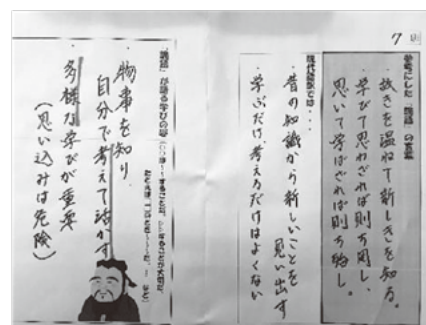 参考にした「論語」の言葉
・故きを温ねて新しきを知る。
・学びて思わざれば則ち罔し、
思いて学ばざれば則ち殆し。
現代語訳では・・・
・昔の知識から新しいことを見い出す
・学ぶだけ、考えるだけはよくない
「論語」が語る学びの姿
・物事を知り
自分で考えて活かす
・多様な学びが重要
(思い込みは危険)